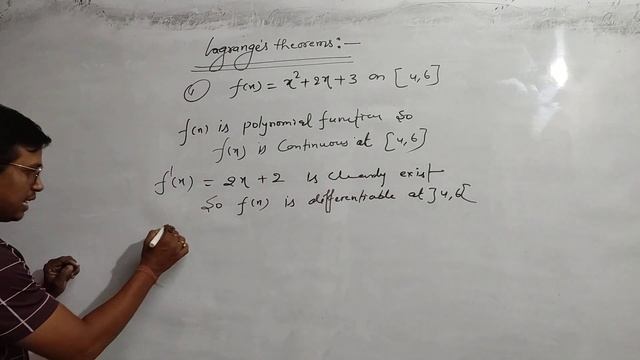 Lagrange's theorems:-
(1) f(x) = x²+2x+3 on [4,6]
f(x) is polynomial function so
f(x) is continuous at [4,6]
f'(x) = 2x+2 is clearly exist
So f(x) is differentiable at ]4,6[